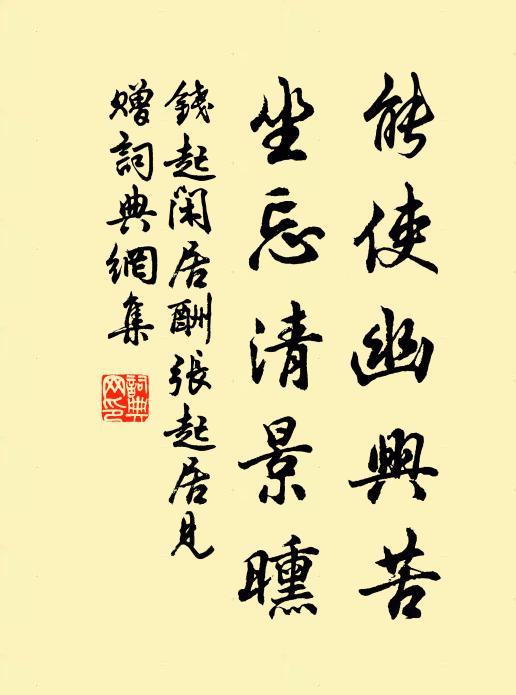 能使幽興苦
坐忘清景曛
錢起閑居酬張起居見
贈詞典網集
詞典网印